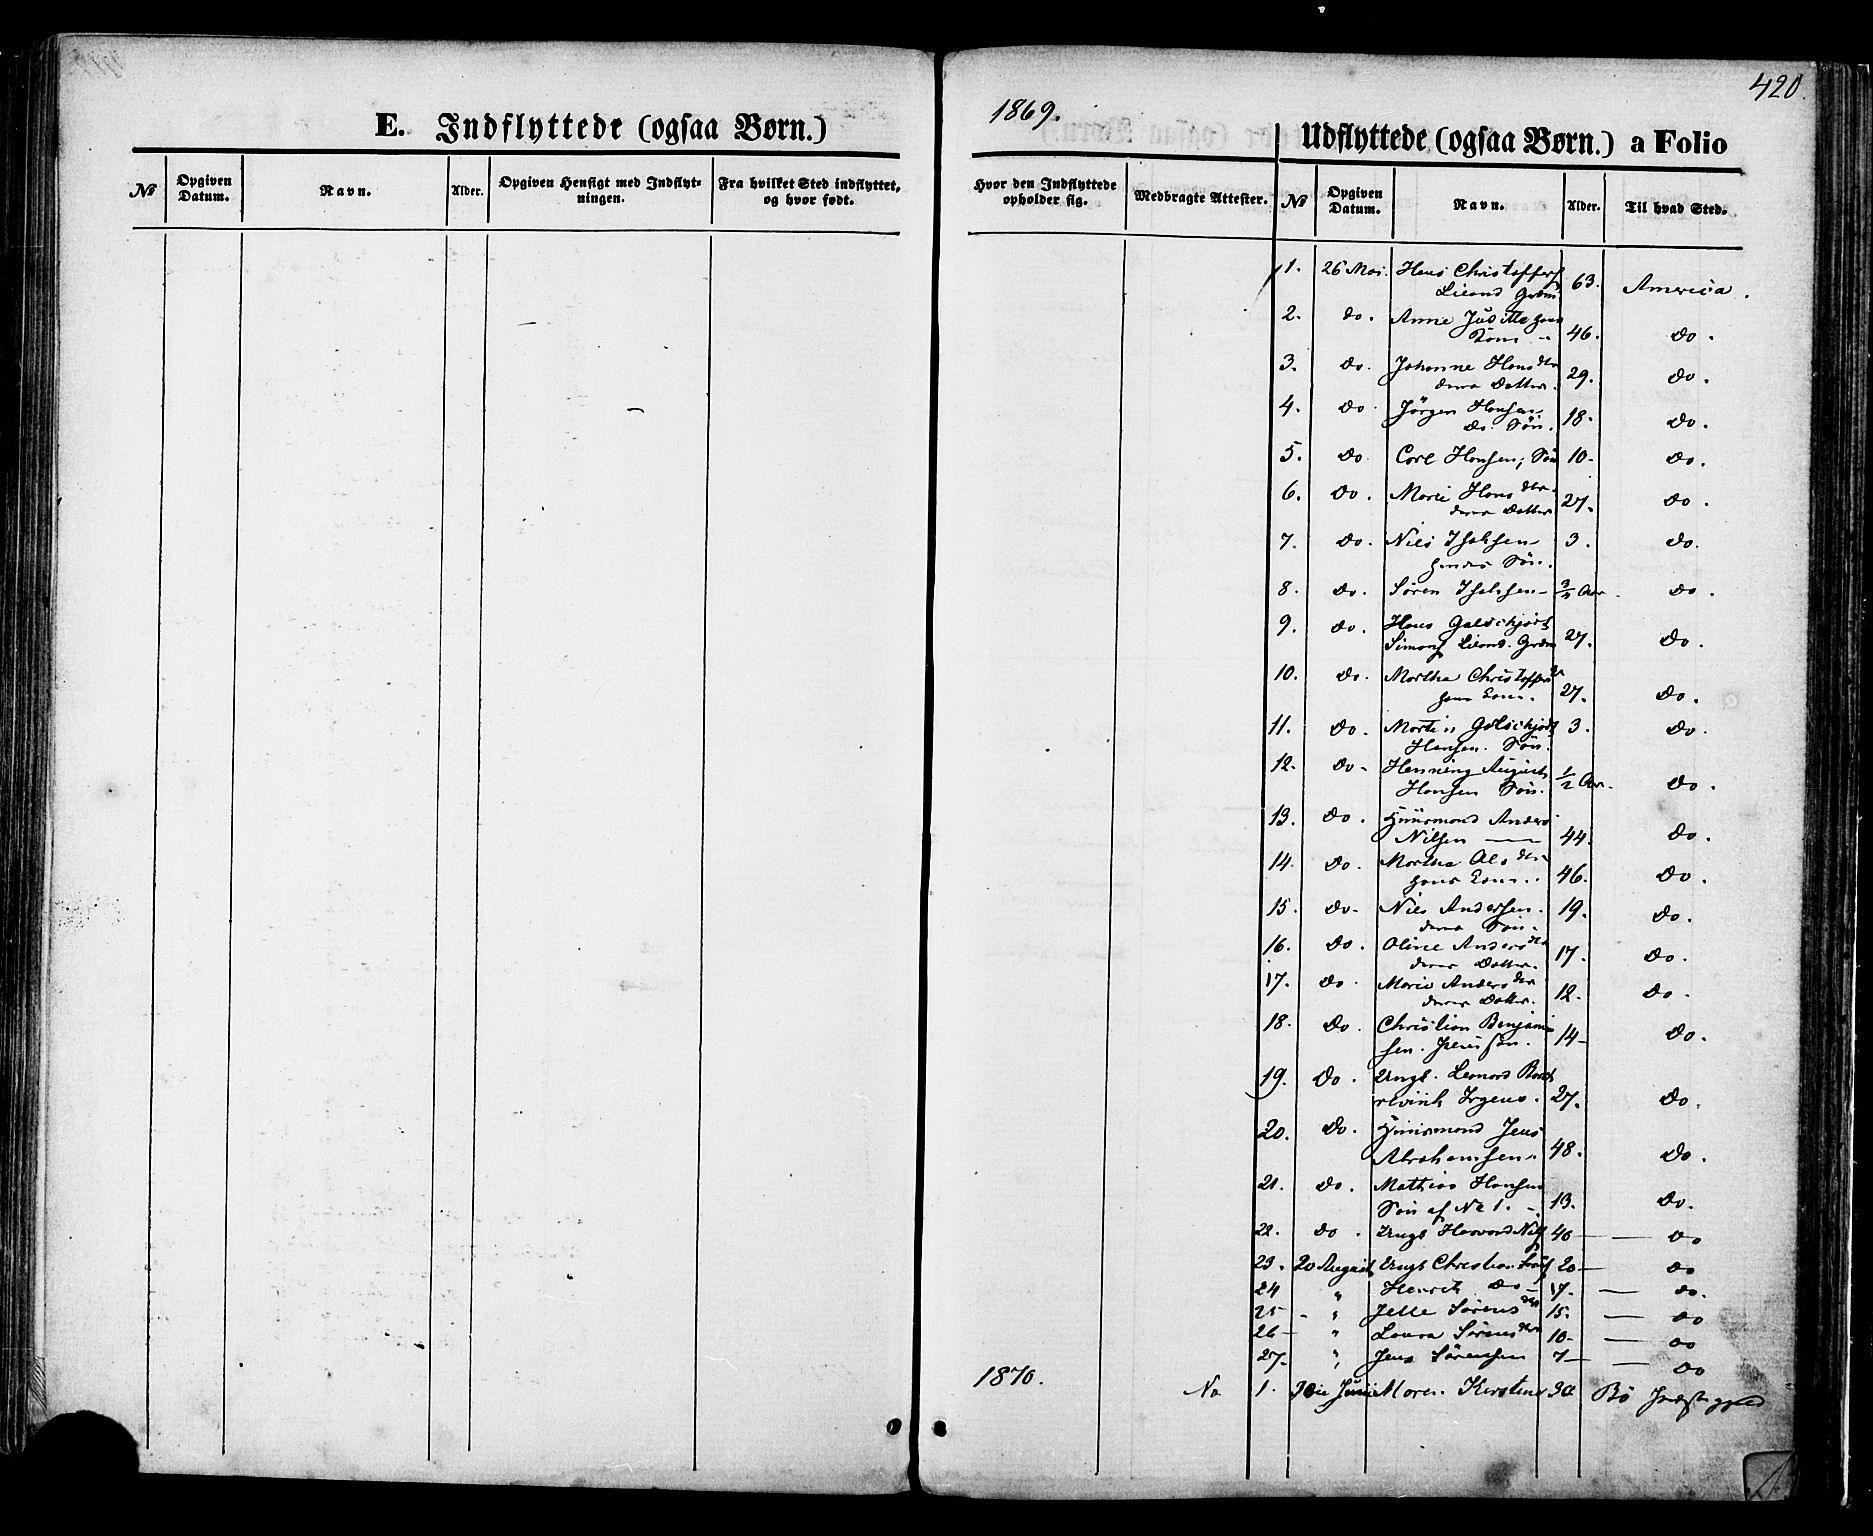 420.
E. Indflyttede (ogsaa Børn.)
No
Opgiven Datum.
Navn.
Alder.
Opgiven Hensigt med Indflytningen.
Fra hvilket Sted indflyttet, og hvor født.
1869.
Udflyttede (ogsaa Børn.) a Folio
Hvor den Indflyttede opholder sig.
Medbragte Attester.
No
Opgiven Datum.
Navn.
Alder.
Til hvad Sted.
1. 26 Mai. Hans Christoffers 63. America.
2. do. Anne 46. do.
3. do. Johanne Hansdtr 29. do.
deres Datter.
4. do. Jörgen Hansen 18. do.
do. Sön.
5. do. Carl Hansen, Sön 10. do.
6. do. Marie Hansdtr. 27. do.
deres Datter
7. do. Nils Isaksen 3. do.
hendes Sön.
8. do. Sören Isaksen do.
9. do. Hans 27. do.
10. do. Martha Christoffersdr 27. do.
hans Kone.
11. do. Martin 3. do.
Hansen. Sön.
12. do. Henning August ½ Aar. do.
Hansen Sön.
13. do. Huusmand Anders do.
Nilsen 44.
14. do. Martha Olsdtr 46. do.
hans Kone.
15. do. Nils Andersen. 19. do.
deres Sön.
16. do. Oline Andersdtr 17. do.
deres Datter.
17. do. Marie Andersdtr 12. do.
deres Datter.
18. do. Christian Benjaminsen. 14 do.
19. do. Ungk. Leonard 27. do.
Irgens.
20. do. Huusmand Jens do.
Abrahamsen. 48.
21. do. Mathias Hansen 13. do.
Sön af No 1.
22. do. Ungk 40 do
23. 20 August Ungk Christian 20 do
24 " Henrik do 17. do.
25 " Jette Sörensdtr 15. do
26 " Laura Sörensdtr 10 do
27. " Jens Sörensen 7 do
1870. No 1. Juni Maren 30 Bö Præstegjeld